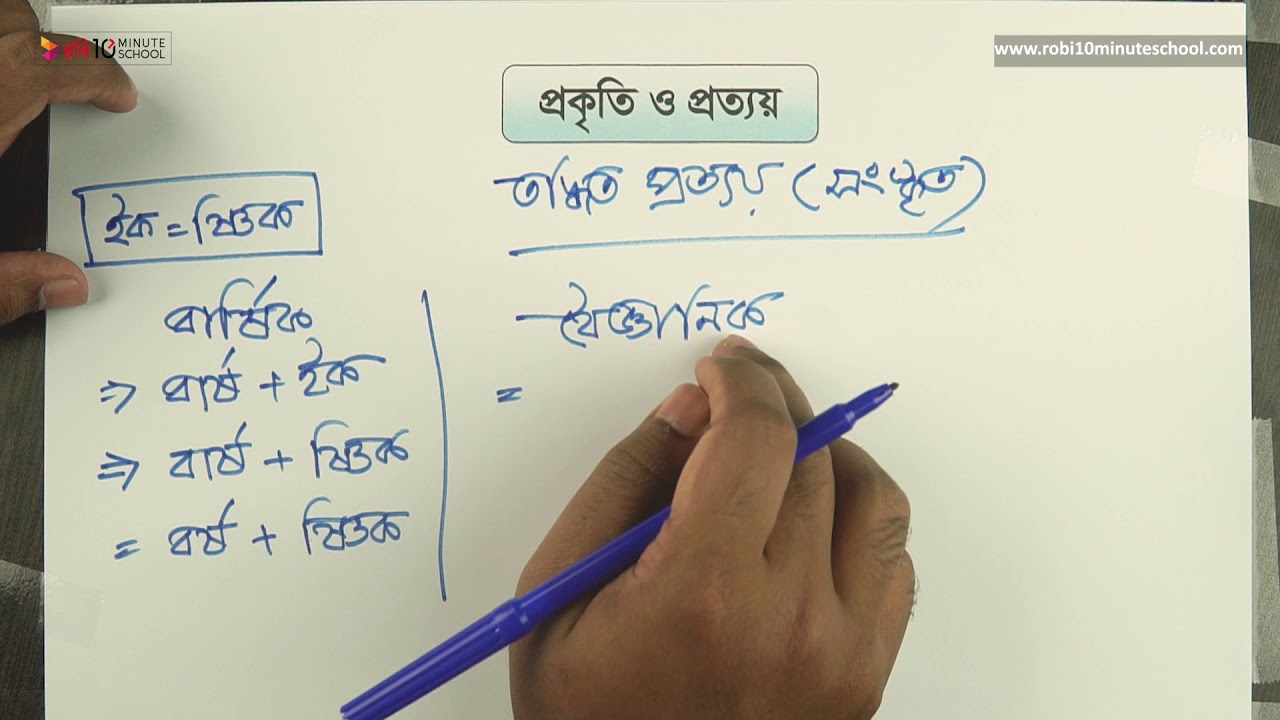 রবি 10 MINUTE SCHOOL
www.robi10minuteschool.com
প্রকৃতি ও প্রত্যয়
তদ্ধিত প্রত্যয় (সংস্কৃত)
ইক = ষ্ণিক
বার্ষিক
⇒ বার্ষ + ইক
⇒ বার্ষ + ষ্ণিক
= বর্ষ + ষ্ণিক
বৈজ্ঞানিক
=